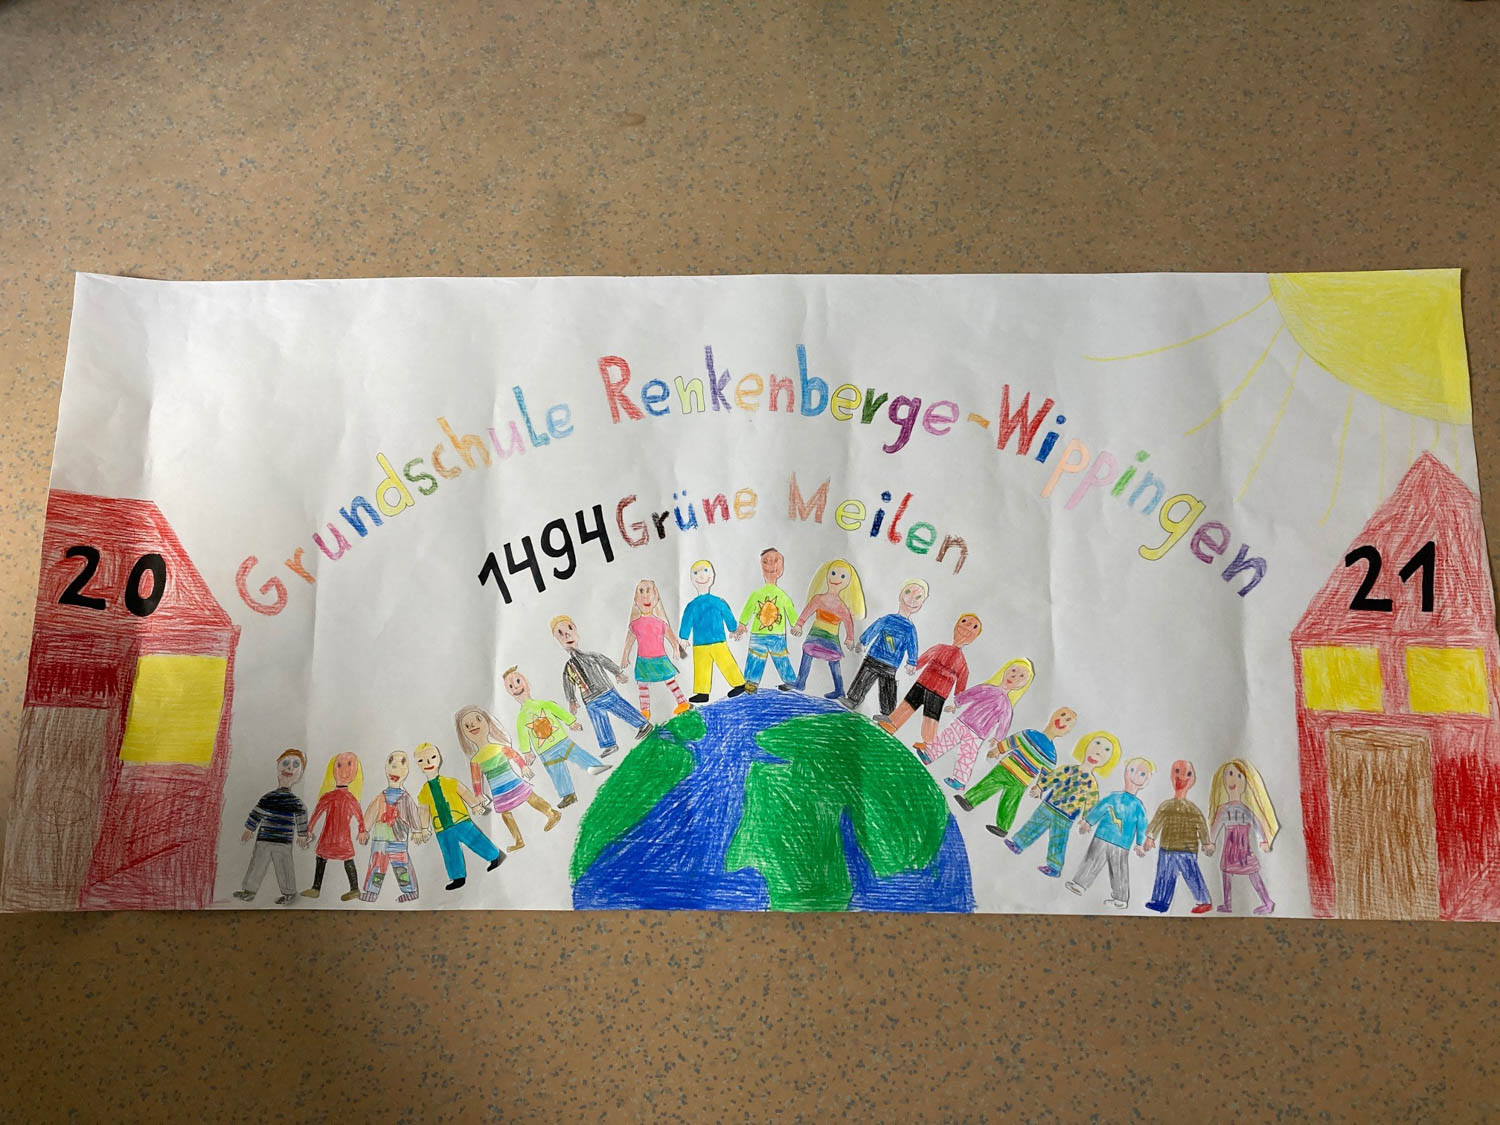 Grundschule Renkenberge-Wippingen
1494 Grüne Meilen
20
21